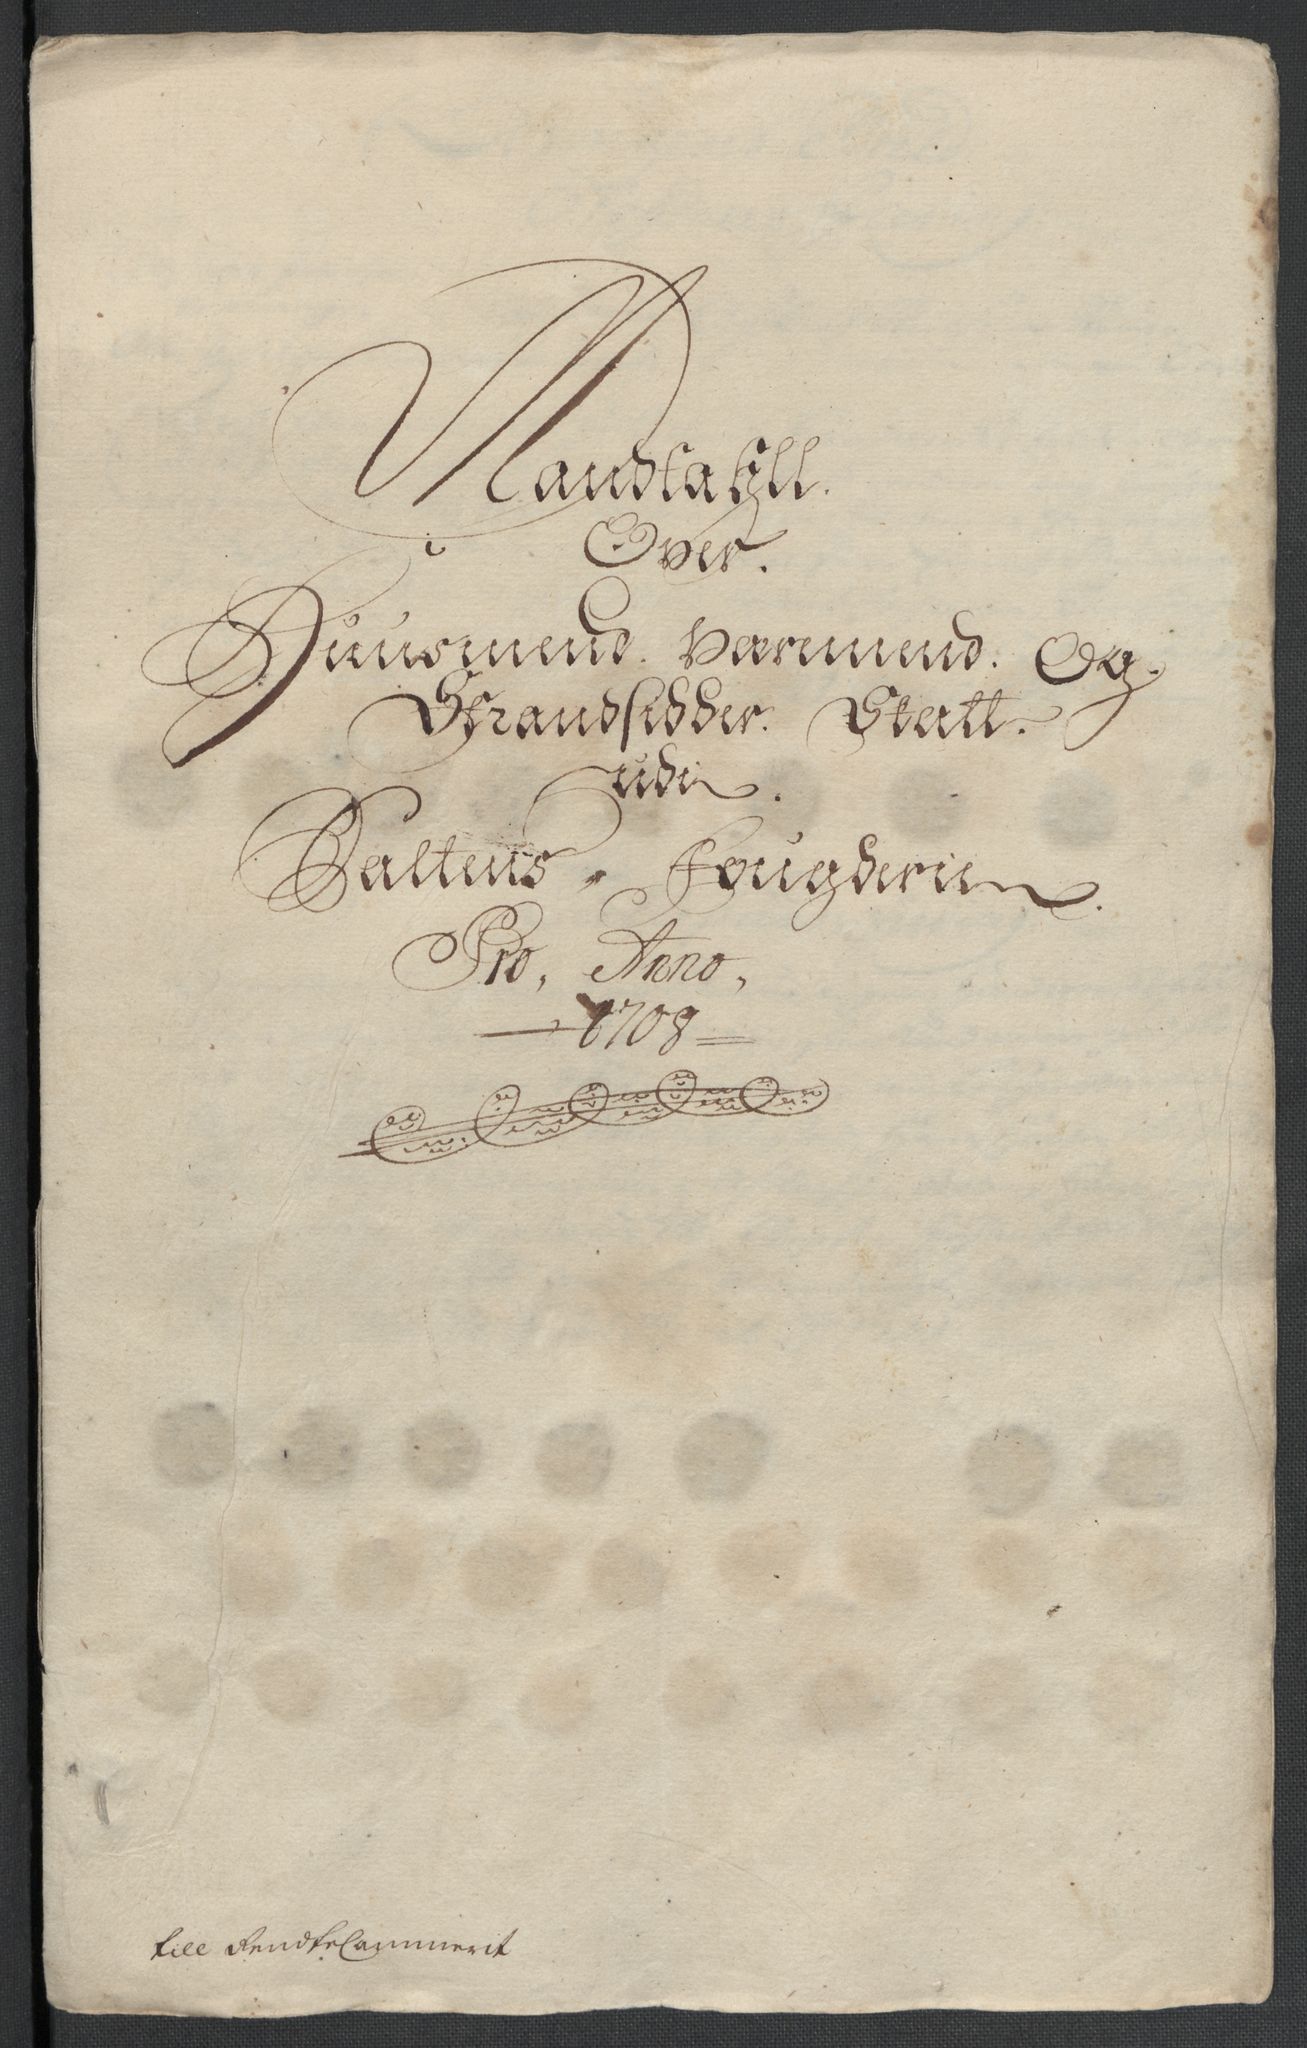 Mandtahll.
Over.
Huusmend. Værmend. Og.
Strandsidder. Skatt.
udi.
Saltens Fougderie.
Pro, Anno,
1708
till RendteCammerit